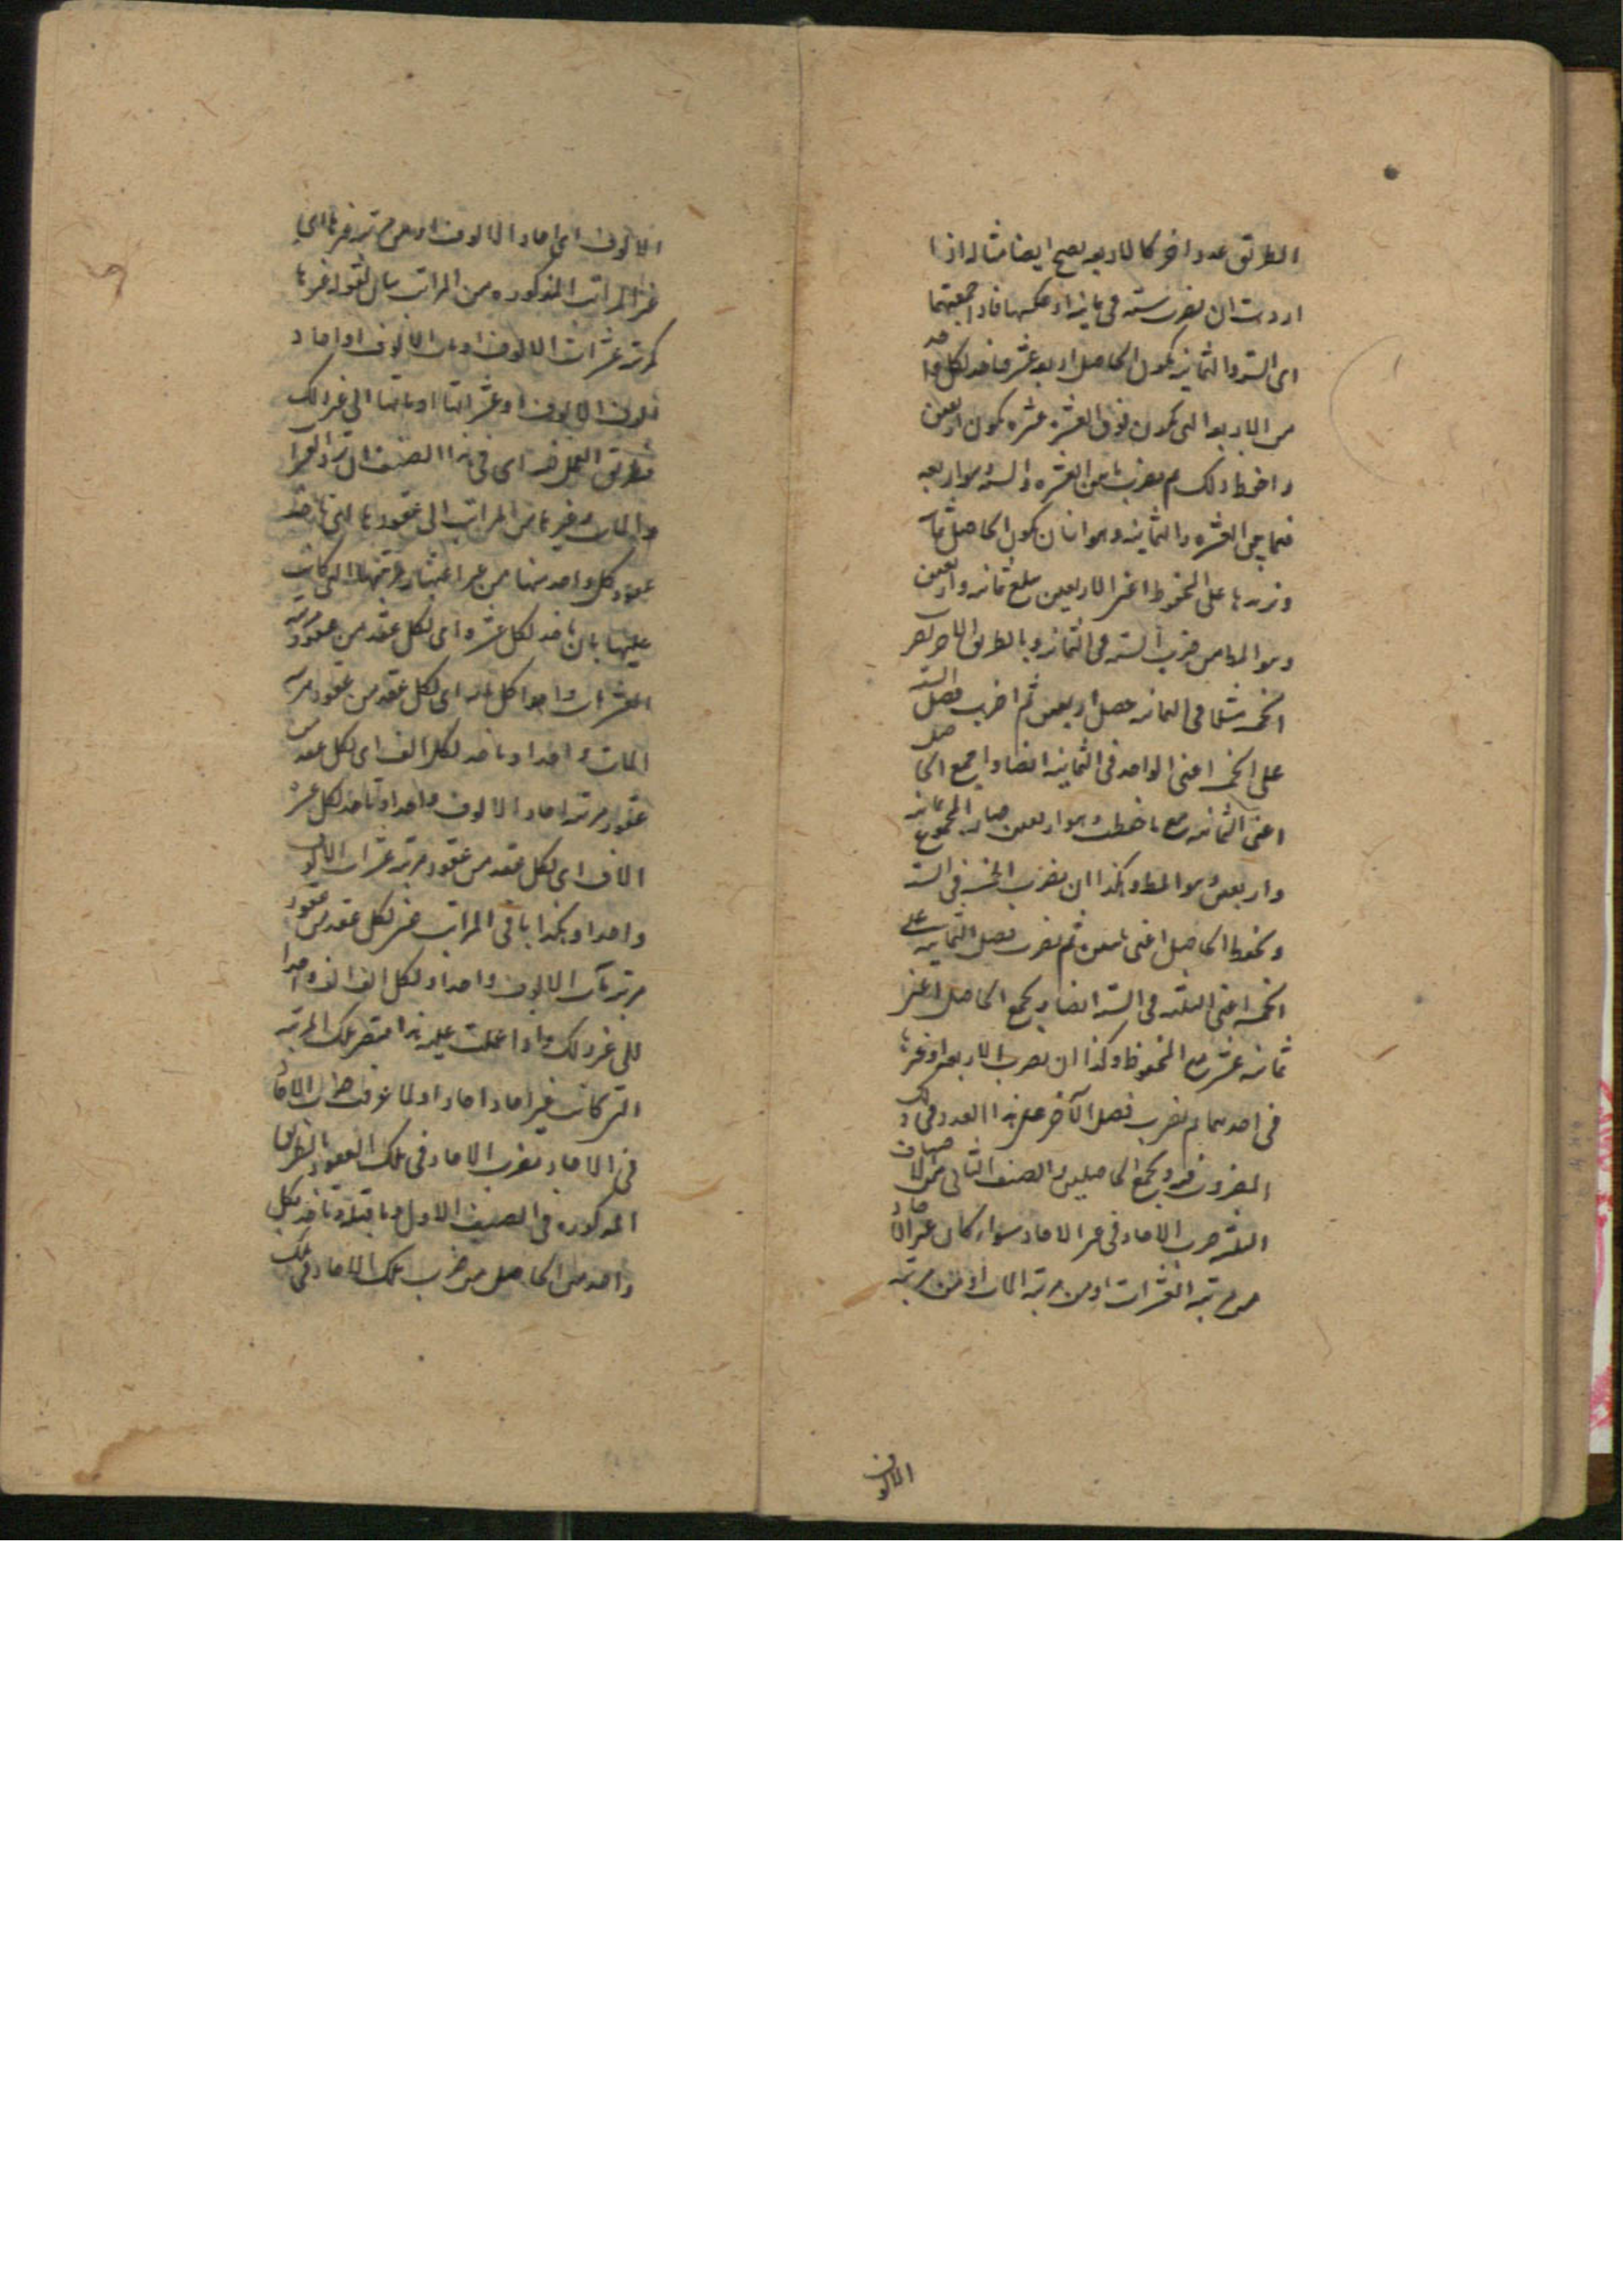 الطريق عدد اخر كالاربعه يصح ايضا مثاله اذا
اردت ان تضرب ستة في ثمانية او عكسها فاذا جمعتهما
اى الستة والثمانية يكون الحاصل اربعة عشر فتاخذ لكل واحد
من الاربعة التى يكون فوق العشرة عشرة يكون اربعين
واحفظ ذلك ثم تضرب ما بين العشرة والستة وهو اربعة
فيما بين العشرة والثمانية وهو اثنان يكون الحاصل ثمانية
وتزيدها على المحفوظ اعنى الاربعين يبلغ ثمانيه واربعين
وهو الحاصل من ضرب الستة فى الثمانية وبالطريق الاخر تضرب
الخمسة مثلا فى الثمانيه حصل اربعين ثم اضرب فضل الستة
على الخمسة اعنى الواحد فى الثمانية ايضا واجمع الحاصل
اعنى الثمانيه مع ما حفظت وهو اربعين صار المجموع ثمانية
واربعين وهو المط وهكذا ان تضرب الخمسة فى الستة
وتحفظ الحاصل اعنى ثلثين ثم تضرب فضل الثمانية على
الخمسة اعنى الثلثة فى الستة ايضا وتجمع الحاصل اعنى
ثمانية عشر مع المحفوظ وكذا ان تضرب الاربعة او غيرها
فى احدهما ثم تضرب فضل الآخر على هذا العدد فى ذلك
المضروب فيه وتجمع الحاصلين والصنف الثانى من الاصناف
الثلثة ضرب الاحاد فى غير الاحاد سواء كان غير الاحاد
من مرتبة العشرات او من مرتبة المات او من مرتبة
الالوف
الالوف اى احاد الالوف او من مرتبة غيرها اى
غير المراتب المذكورة من المراتب بيان لقوله غيرها
كمرتبة عشرات الالوف او مات الالوف او احاد
الوف الالوف او عشراتها او ماتها الى غير ذلك
فطريق العمل فيه اى فى هذا الصنف ان ترد العشرات
والمات وغيرها من المراتب الى عقودها اى تاخذ
عقود كل واحد منها من غير اعتبار مرتبتها التى كانت
عليها بان تاخذ لكل عشرة اى لكل عقد من عقود مرتبة
العشرات واحدا ولكل مائة اى لكل عقد من عقود مرتبة
المات واحدا وتاخذ لكل الف اى لكل عقد من
عقود مرتبة احاد الالوف واحدا وتاخذ لكل عشرة
الاف اى لكل عقد من عقود مرتبة عشرات الالوف
واحدا وهكذا باقى المراتب فخذ لكل عقد من عقود
مرتبة مآت الالوف واحدا ولكل الف الف واحدا
الى غير ذلك واذا عملت عليه هذا فتصير تلك المرتبة
التى كانت غير احاد احادا ولما عرفت ضرب الاحاد
فى الاحاد تضرب الاحاد فى تلك العقود بالطريق
المذكوره فى الصنف الاول وتاخذ لكل
واحد من الحاصل من ضرب تلك الاحاد فى تلك